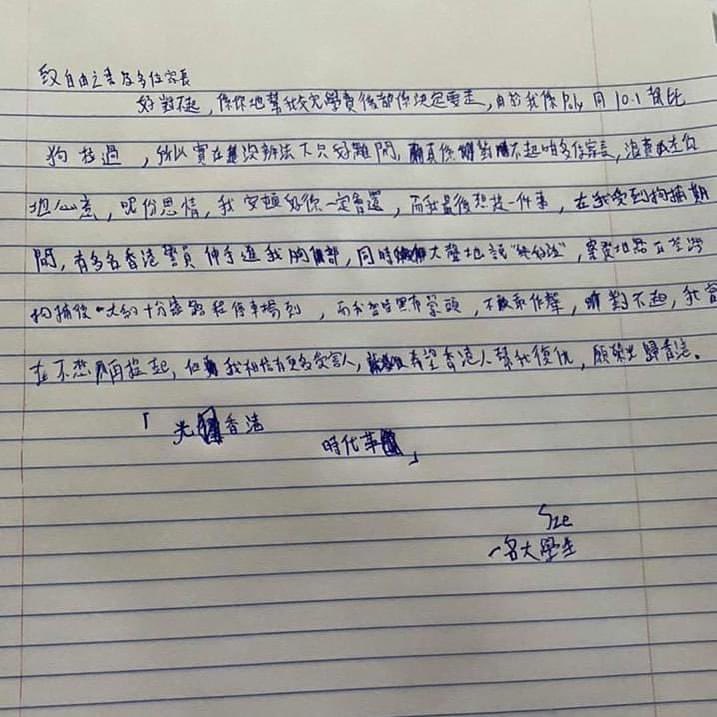 致自由之_及多位家長
好對不起，係你地幫我交完學費後都係決定要走，由於我係Poly同10.1都比
狗拉過，所以實在沒辦法下只好離開，真係對不起咁多位家長，浪費左你
地心意，呢份恩情，我安頓好一定會還，而我最後想提一件事，在我受到拘捕期
間，有多名香港警員伸手進我胸部，同時大聲地說"
拘捕後 大約十分鐘路程停車場到，而我當時黑布蒙頭，不敢作聲，對不起，我實
在不想再提起，但我相信有更多受害人，希望香港人幫我復仇，願榮光歸香港。
「光復香港
時代革命」
Sze
一名大學生